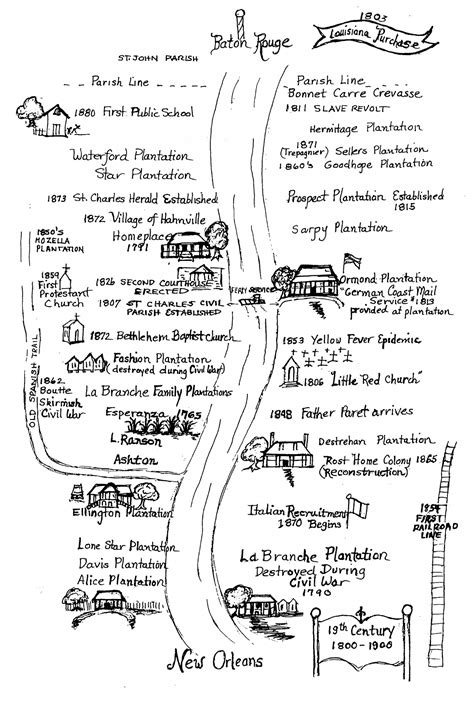 1803
Louisiana Purchase
Baton Rouge
ST. JOHN PARISH
Parish Line
Parish Line
Bonnet Carre Crevasse
1880 First Public School
1811 SLAVE REVOLT
Hermitage Plantation
1871
(Trepagnier) Sellers Plantation
1860's Goodhope Plantation
Waterford Plantation
Star Plantation
1873 St. Charles Herald Established
Prospect Plantation Established
1815
1872 Village of Hahnville
Homeplace
1791
Sarpy Plantation
1850's
MOZELLA
PLANTATION
1859
First
Protestant
Church
1826 SECOND COURTHOUSE
ERECTED
FERRY SERVICE
1807 ST CHARLES CIVIL
PARISH ESTABLISHED
Ormond Plantation
"German Coast Mail
Service" 1813
provided at plantation
1872 Bethlehem Baptist Church
1853 Yellow Fever Epidemic
Fashion Plantation
(destroyed during Civil War)
1806 "Little Red Church"
OLD SPANISH TRAIL
1862
Boutte
Skirmish
Civil War
La Branche Family Plantations
Esperanza 1765
L. Ranson
Ashton
1848 Father Paret arrives
Destrehan Plantation
Rost Home Colony 1865
(Reconstruction)
Ellington Plantation
Italian Recruitment
1870 Begins
1854
FIRST
RAILROAD
LINE
Lone Star Plantation
Davis Plantation
Alice Plantation
La Branche Plantation
Destroyed During
Civil War
1790
19th Century
1800-1900
New Orleans